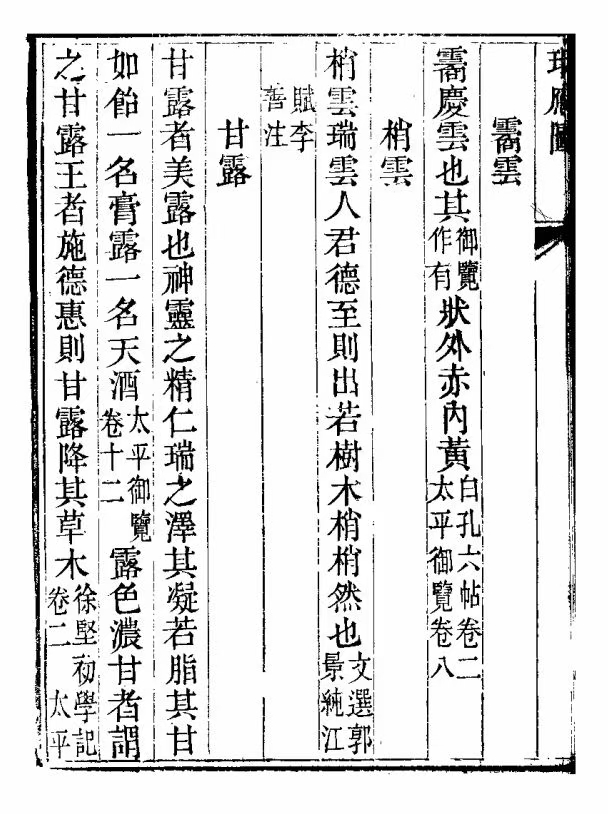 瑞應圖
霱雲
霱慶雲也其御覽作有狀外赤內黃白孔六帖卷二太平御覽卷八
梢雲
梢雲瑞雲人君德至則出若樹木梢梢然也文選郭景純江
賦李善注
甘露
甘露者美露也神靈之精仁瑞之澤其凝若脂其甘
如飴一名膏露一名天酒太平御覽卷十二露色濃甘者謂
之甘露王者施德惠則甘露降其草木徐堅初學記卷二 太平